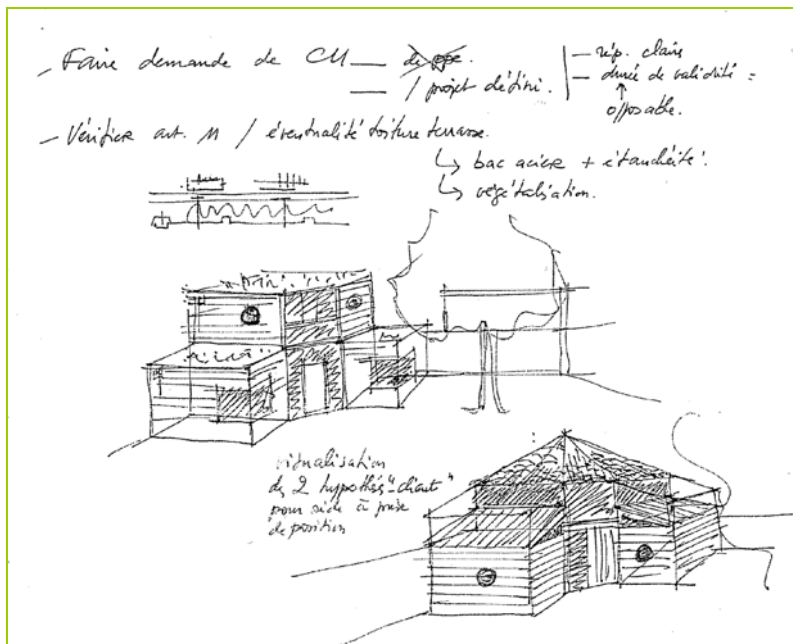 — Faire demande de CU — de ppe.
— / projet défini.
— rép. claire
— durée de validité =
opposable.
— Vérifier art. 11 / éventualité toiture terrasse.
↳ bac acier + étanchéité.
↳ végétalisation.
visualisation
des 2 hypothès "client"
pour aide à prise
de position